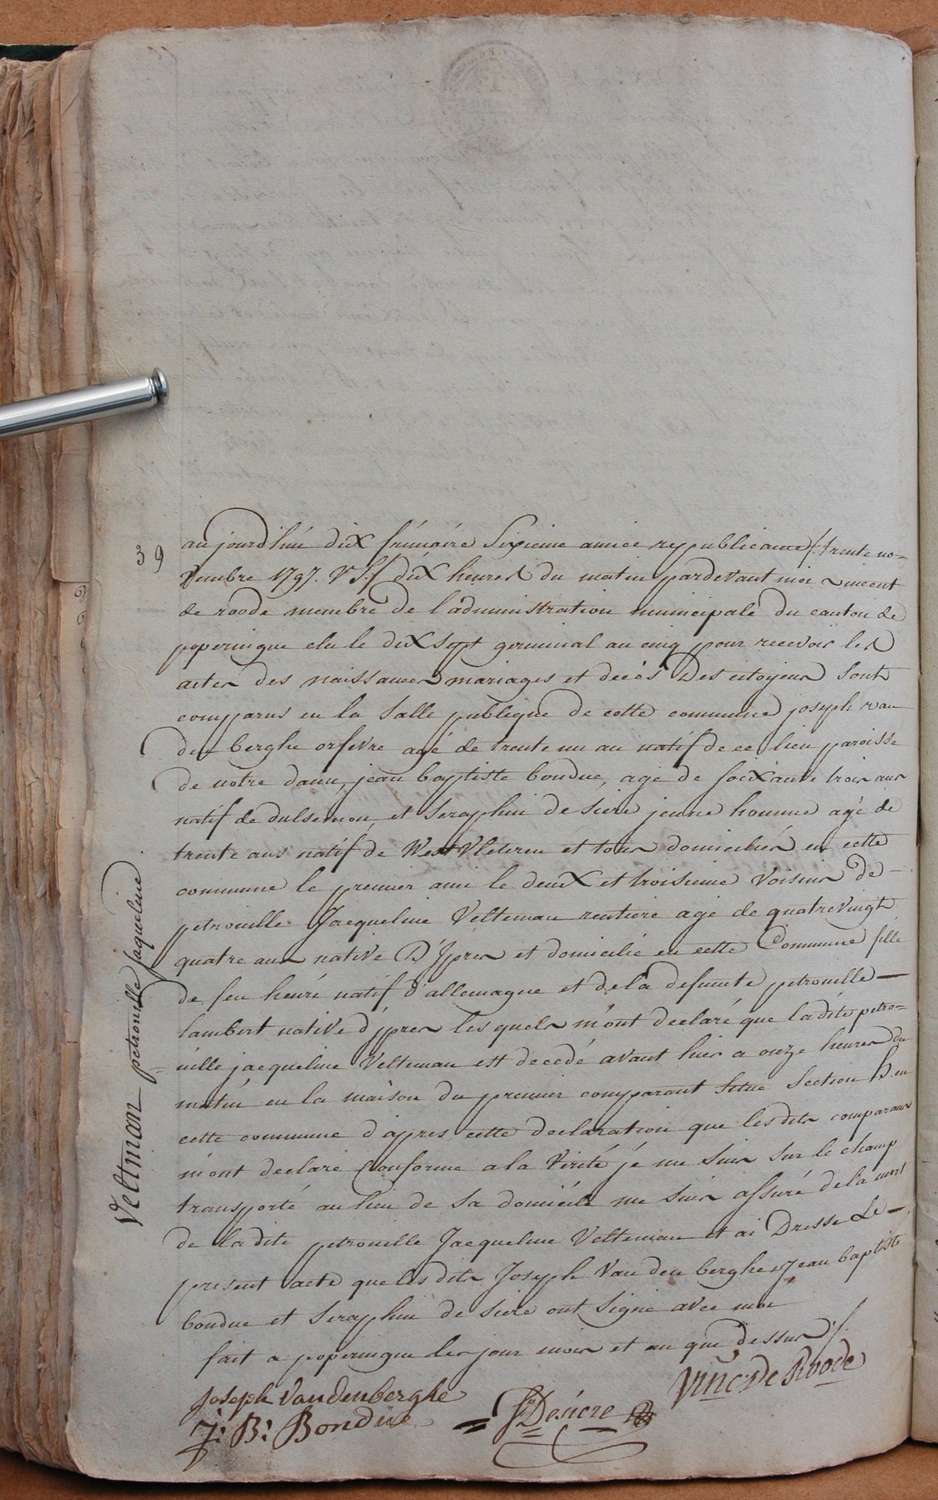 39
Veltman petronille jaqueline
aujourdhui dix frimaire Sixieme année republicaine /: trente no=
vembre 1797. V S :/ dix heures du matin pardevant moi vincent
de roode membre de l'administration municipale du canton de
poperingue elu le dix sept germinal an cinq pour recevoir les
actes des naissances mariages et décès Des citoyens Sont
comparus en la Salle publique de cette commune joseph van
den berghe orfevre agé de trente un an natif de ce lieu paroisse
de notre dame, jean baptiste bondue, agé de soixante trois ans
natif de et Seraphin de Siere jeune homme agé de
trente ans natif de WestVleteren et tous domiciliés en cette
commune le premier ami le deux et troisieme Voisins de -
petronille Jacqueline Velteman rentiere agé de quatrevingt
quatre ans native D'Ypres et domicilié en cette Commune fille
de feu henri natif d'allemagne et de la defunte petronille -
lambert native d'ypres les quels m'ont declaré que la dite petro=
=nille jacqueline Velteman est decedé avant hier a onze heures du
matin en la maison du premier comparant Situe Section B. en
cette commune d'apres cette declaration que les dits comparans
m'ont declaré Conforme a la Vérité je me suis sur le champ
transporté au lieu de sa domicile me suis assuré de la mort
de la dite petronille Jacqueline Velteman et ai Dresse Le -
present acte que les dits Joseph Van den berghe, Jean baptiste
bondue et Seraphin de Siere ont Signé avec moi
fait a poperingue les jour mois et an que dessus ./.
Joseph Vandenberghe
Vinc: De Roode
J: B: Bondue